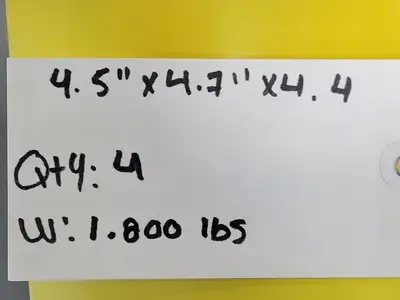 4.5" x 4.7" x 4.4
Qty: 4
W: 1.800 lbs